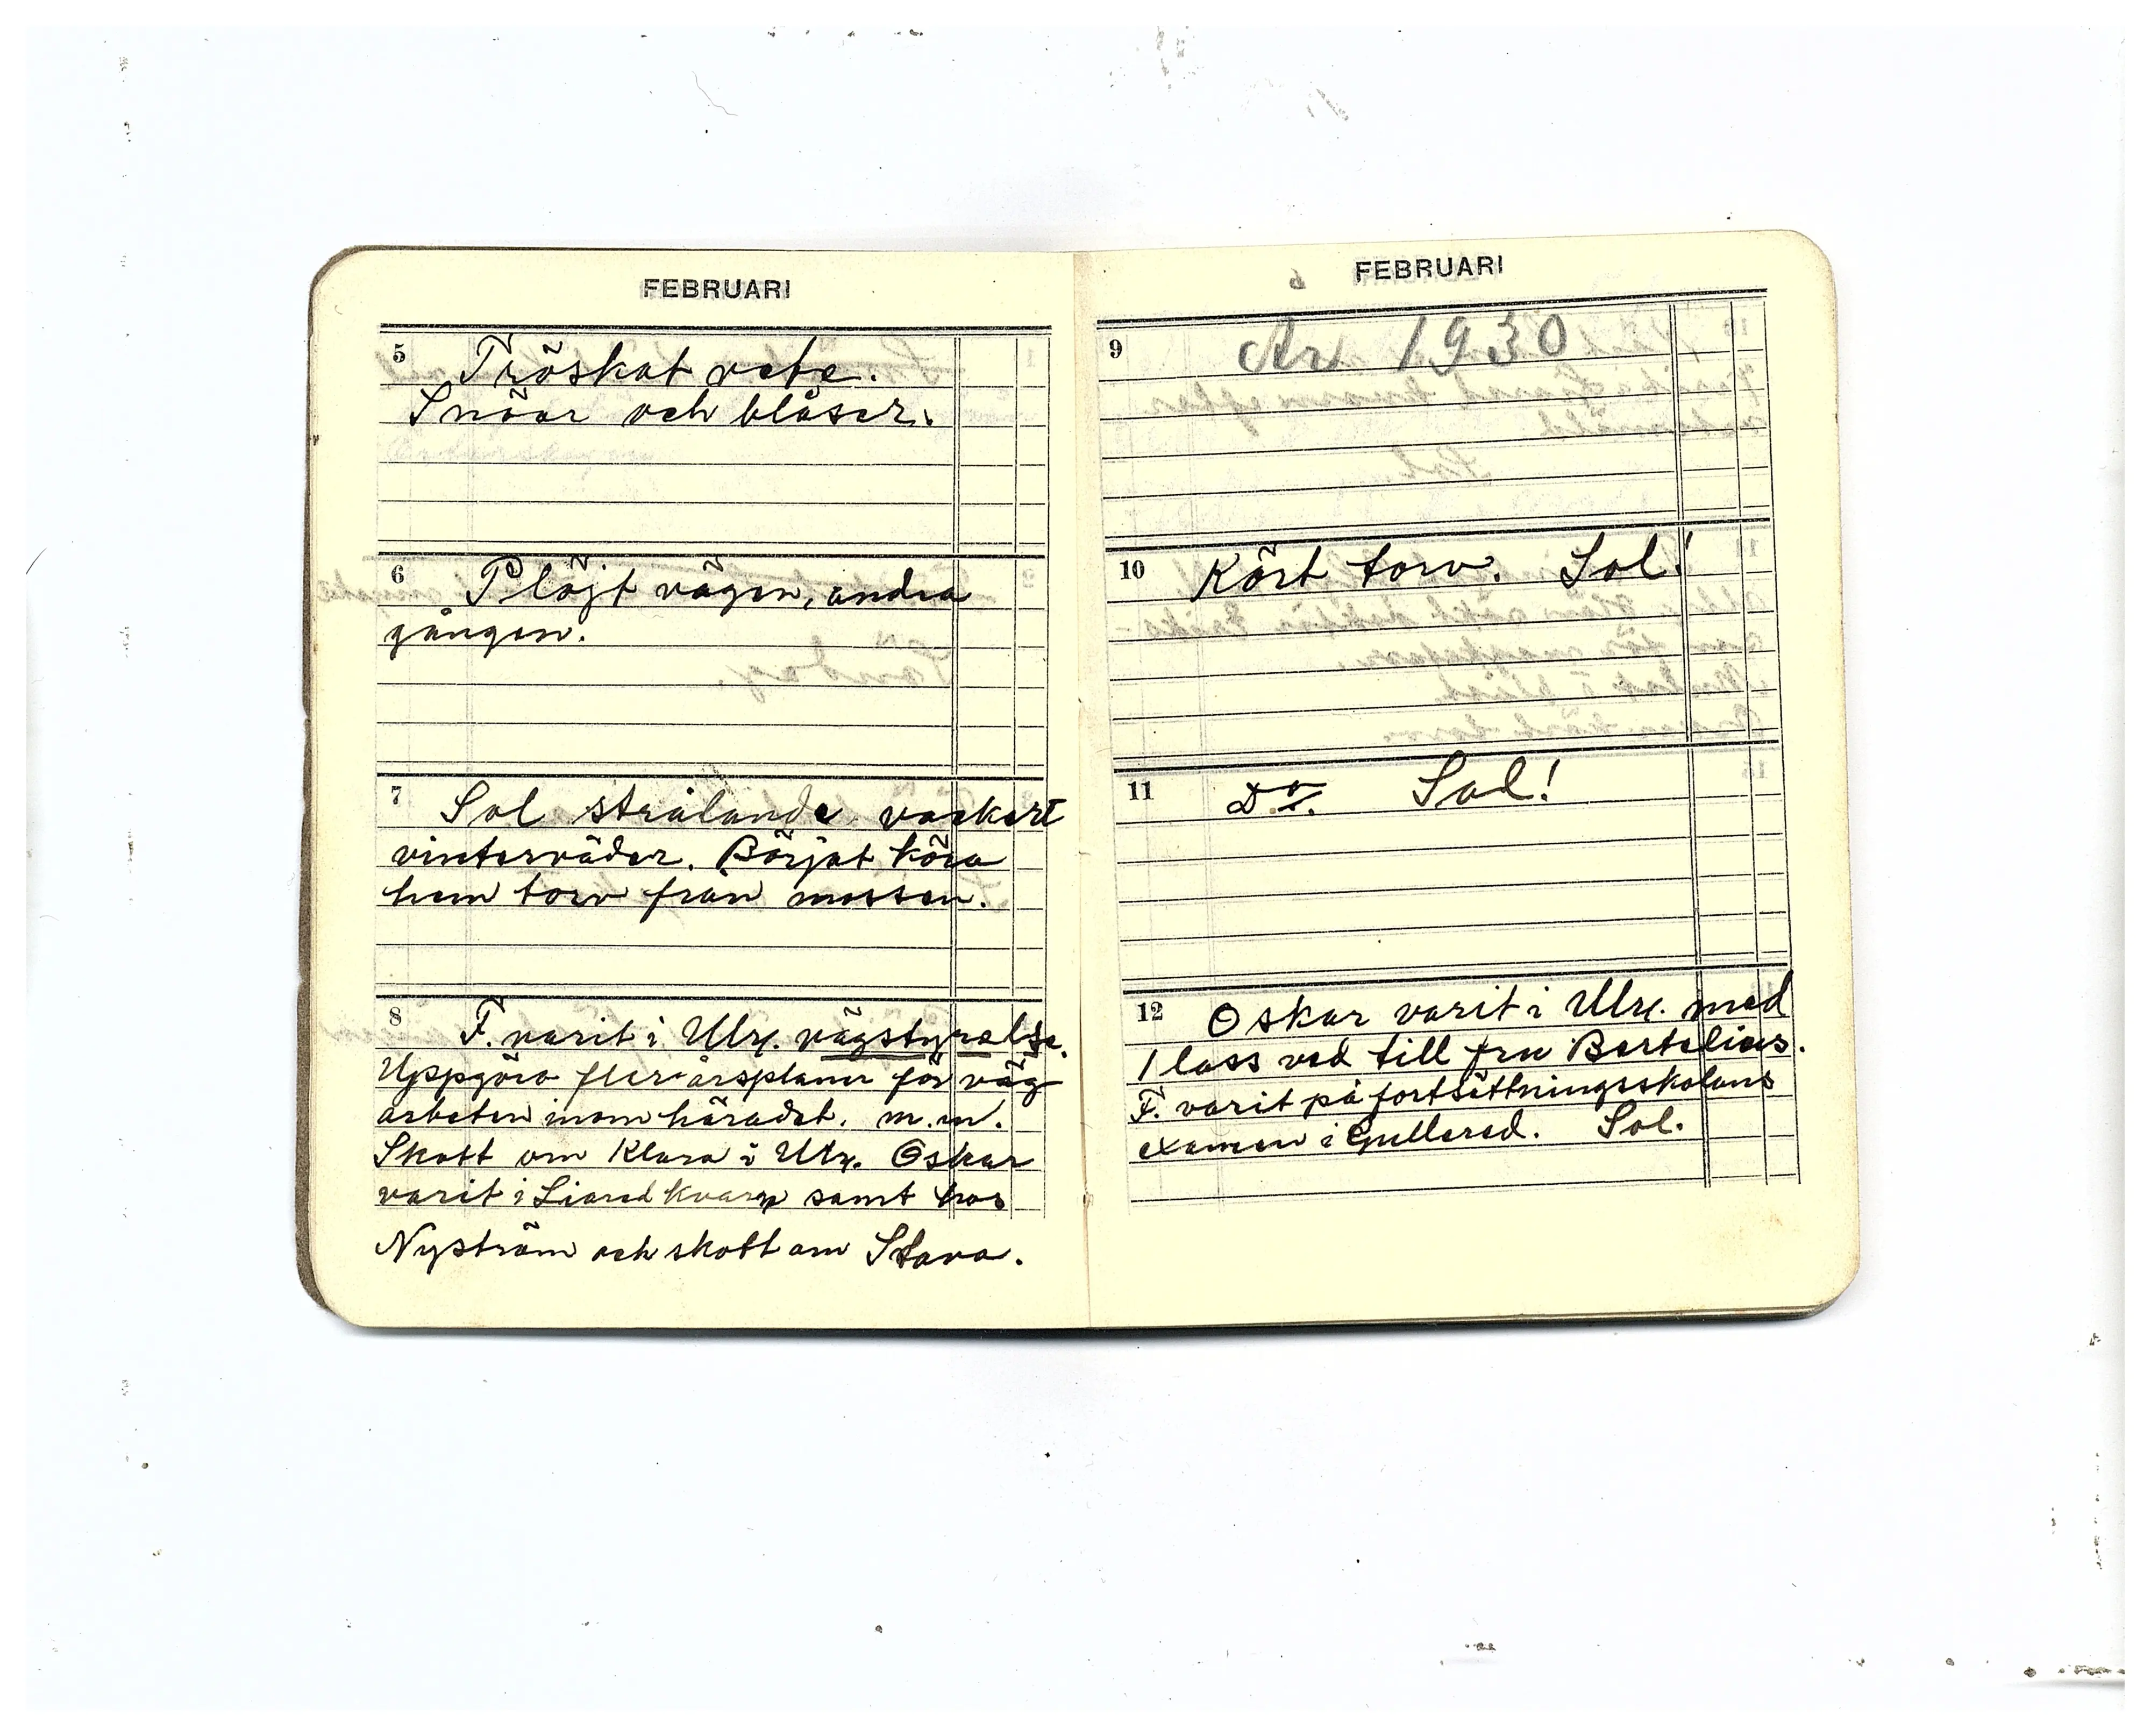 FEBRUARI
5 Tröskat vete.
Snöar och blåser.
6 Plöjt vägen, andra
gången.
7 Sol strålande vackert
vinterväder. Börjat köra
hem torv från mossen.
8 F. varit i Ulrx. vägstyrelse.
Uppgöra flerårsplaner för väg
arbeten inom häradet. m.m.
Skott om Klara i Ulrx. Oskar
varit i Liared kvarn samt hos
Nyström och skott om Stava.
FEBRUARI
9 År 1930
10 Kört torv. Sol!
11 Do. Sol!
12 Oskar varit i Ulrx. med
1 lass ved till fru Bertelius.
F. varit på fortsättningsskolans
examen i Gullered. Sol.